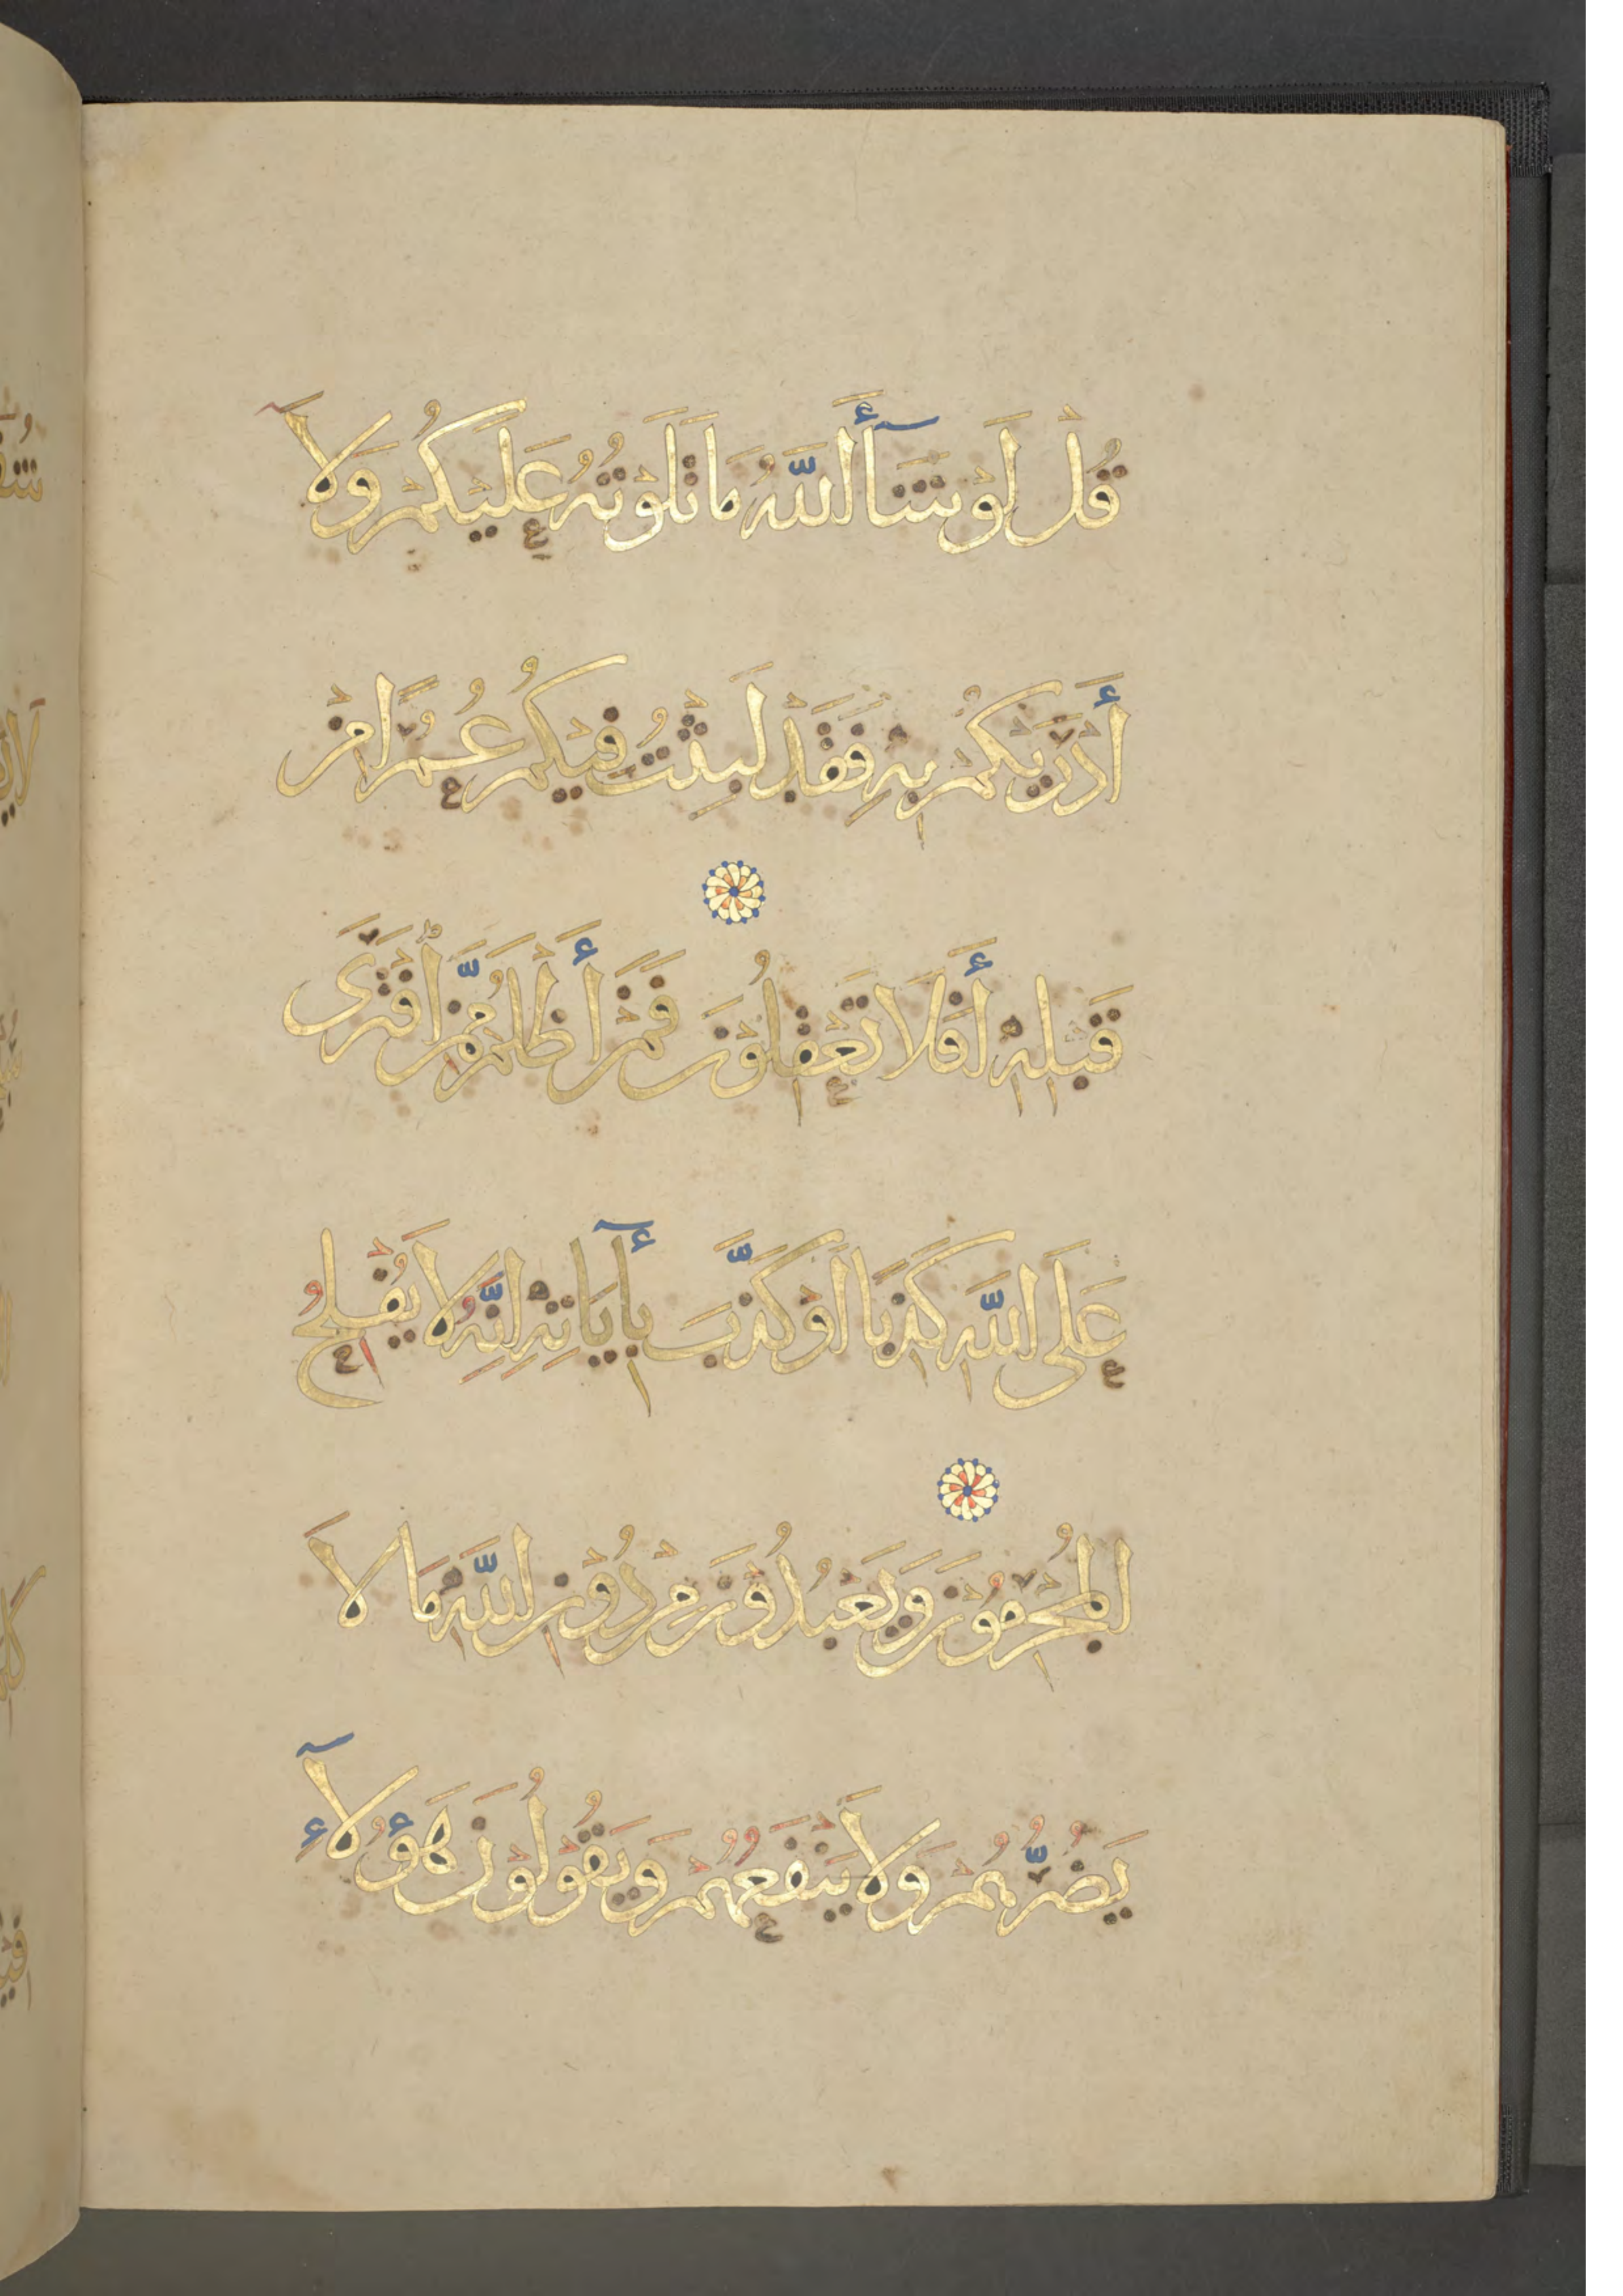 قُل لَوْ شَآءَ اللَّهُ مَا تَلَوْتُهُ عَلَيْكُمْ وَلَا
أَدْرَيٰكُمْ بِهِ فَقَدْ لَبِثْتُ فِيكُمْ عُمُرًا مِنْ
قَبْلِهِ أَفَلَا تَعْقِلُوْنَ فَمَنْ أَظْلَمُ مِمَّنِ افْتَرَى
عَلَى اللَّهِ كَذِبًا أَوْ كَذَّبَ بِأٓيَاتِهِ إِنَّهُ لَا يُفْلِحُ
الْمُجْرِمُوْنَ وَيَعْبُدُوْنَ مِنْ دُوْنِ اللَّهِ مَا لَا
يَضُرُّهُمْ وَلَا يَنْفَعُهُمْ وَيَقُوْلُوْنَ هَؤُلَآءِ